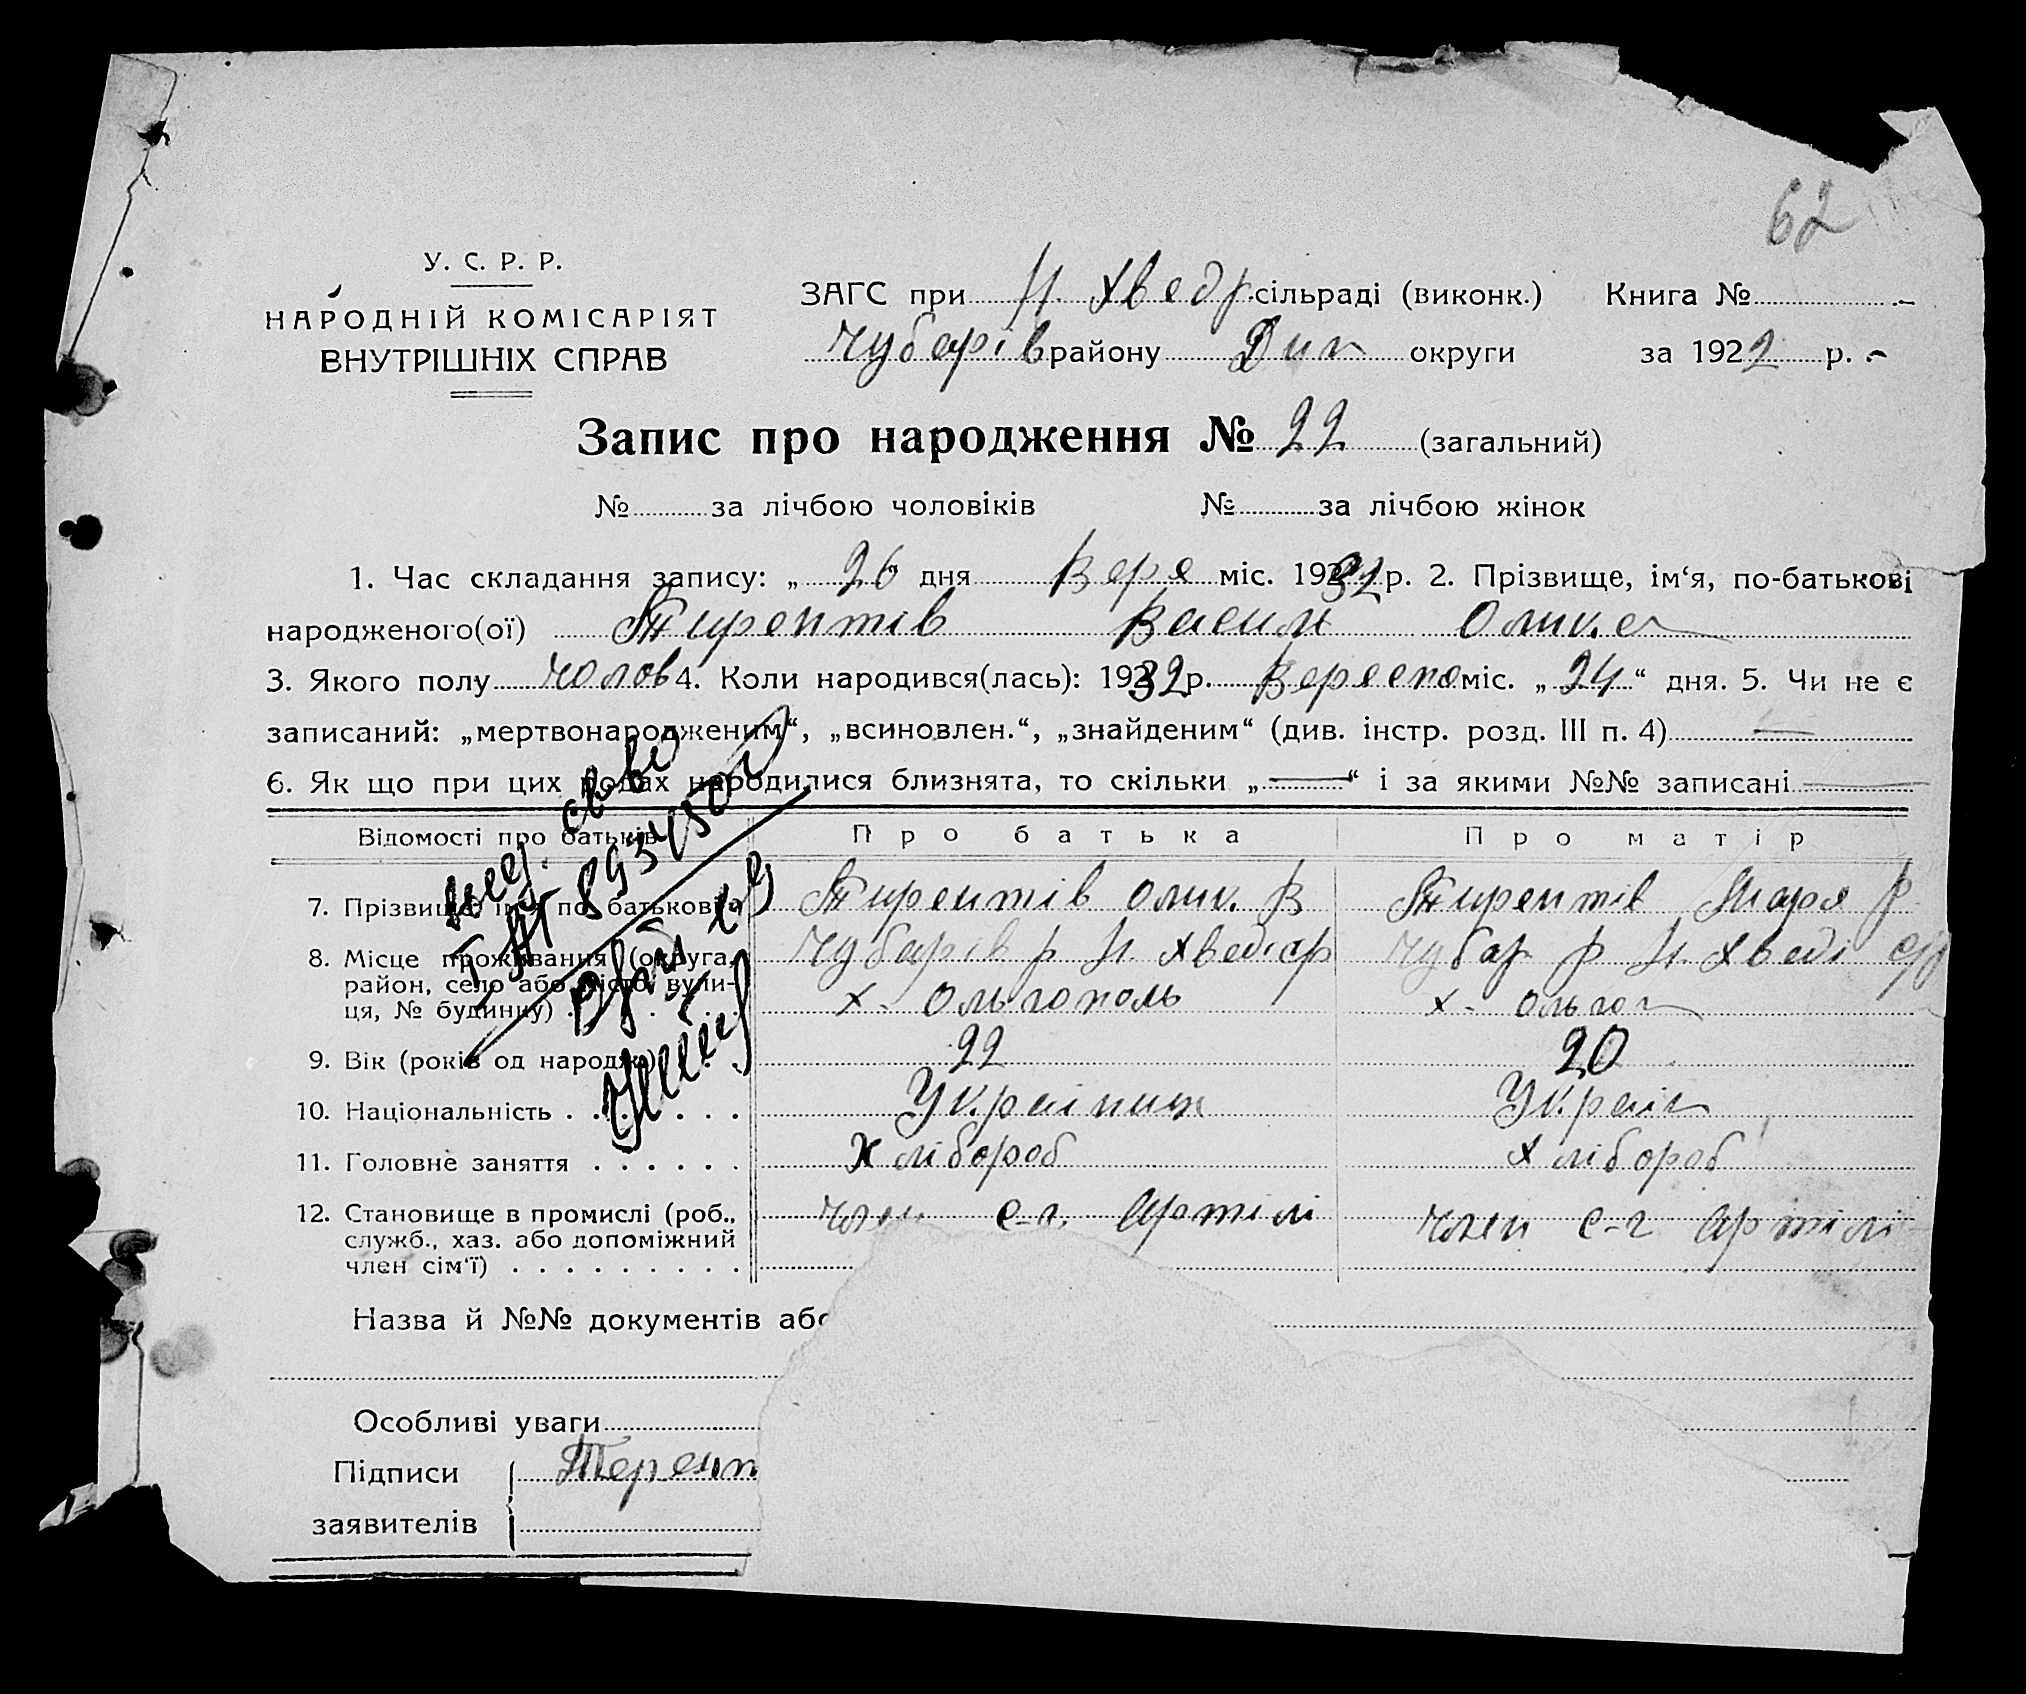 62
У. С. Р. Р.
НАРОДНІЙ КОМІСАРІЯТ
ВНУТРІШНІХ СПРАВ
ЗАГС при Н. Хведр. сільраді (виконк.) Книга №
Чубарів району Дип округи за 1922 р.
Запис про народження № 22 (загальний)
№ за лічбою чоловіків № за лічбою жінок
1. Час складання запису: „ 26 " дня Вере міс. 1932 р. 2. Прізвище, ім‘я, по-батькові
народженого(ої) Тирентів Васил Олик.
3. Якого полу чолов 4. Коли народився(лась): 1932 р. Вересто міс. „ 24 “ дня. 5. Чи не є
записаний: „мертвонародженим“, „всиновлен.“, „знайденим“ (див. інстр. розд. III п. 4)
6. Як що при цих родах народилися близнята, то скільки „ “ і за якими №№ записані
Відомості про батьків Про батька Про матір
7. Прізвище, ім'я по батькові Тирентів Олик. В Тирентів Маря
8. Місце проживання (округа, Чубарів р Н. Хведіср Чубар р Н. Хведі
район, село або місто, вули- х- Ольгополь х- Ольгоп
ця, № будинку)
9. Вік (років од народж.) 22 20
10. Національність Українц Украін
11. Головне заняття Хлібороб Хлібороб
12. Становище в промислі (роб., член с-г. Артілі член с-г Артілі
служб., хаз. або допоміжний
член сім‘ї)
Назва й №№ документів або
Особливі уваги
Підписи Терент
заявителів